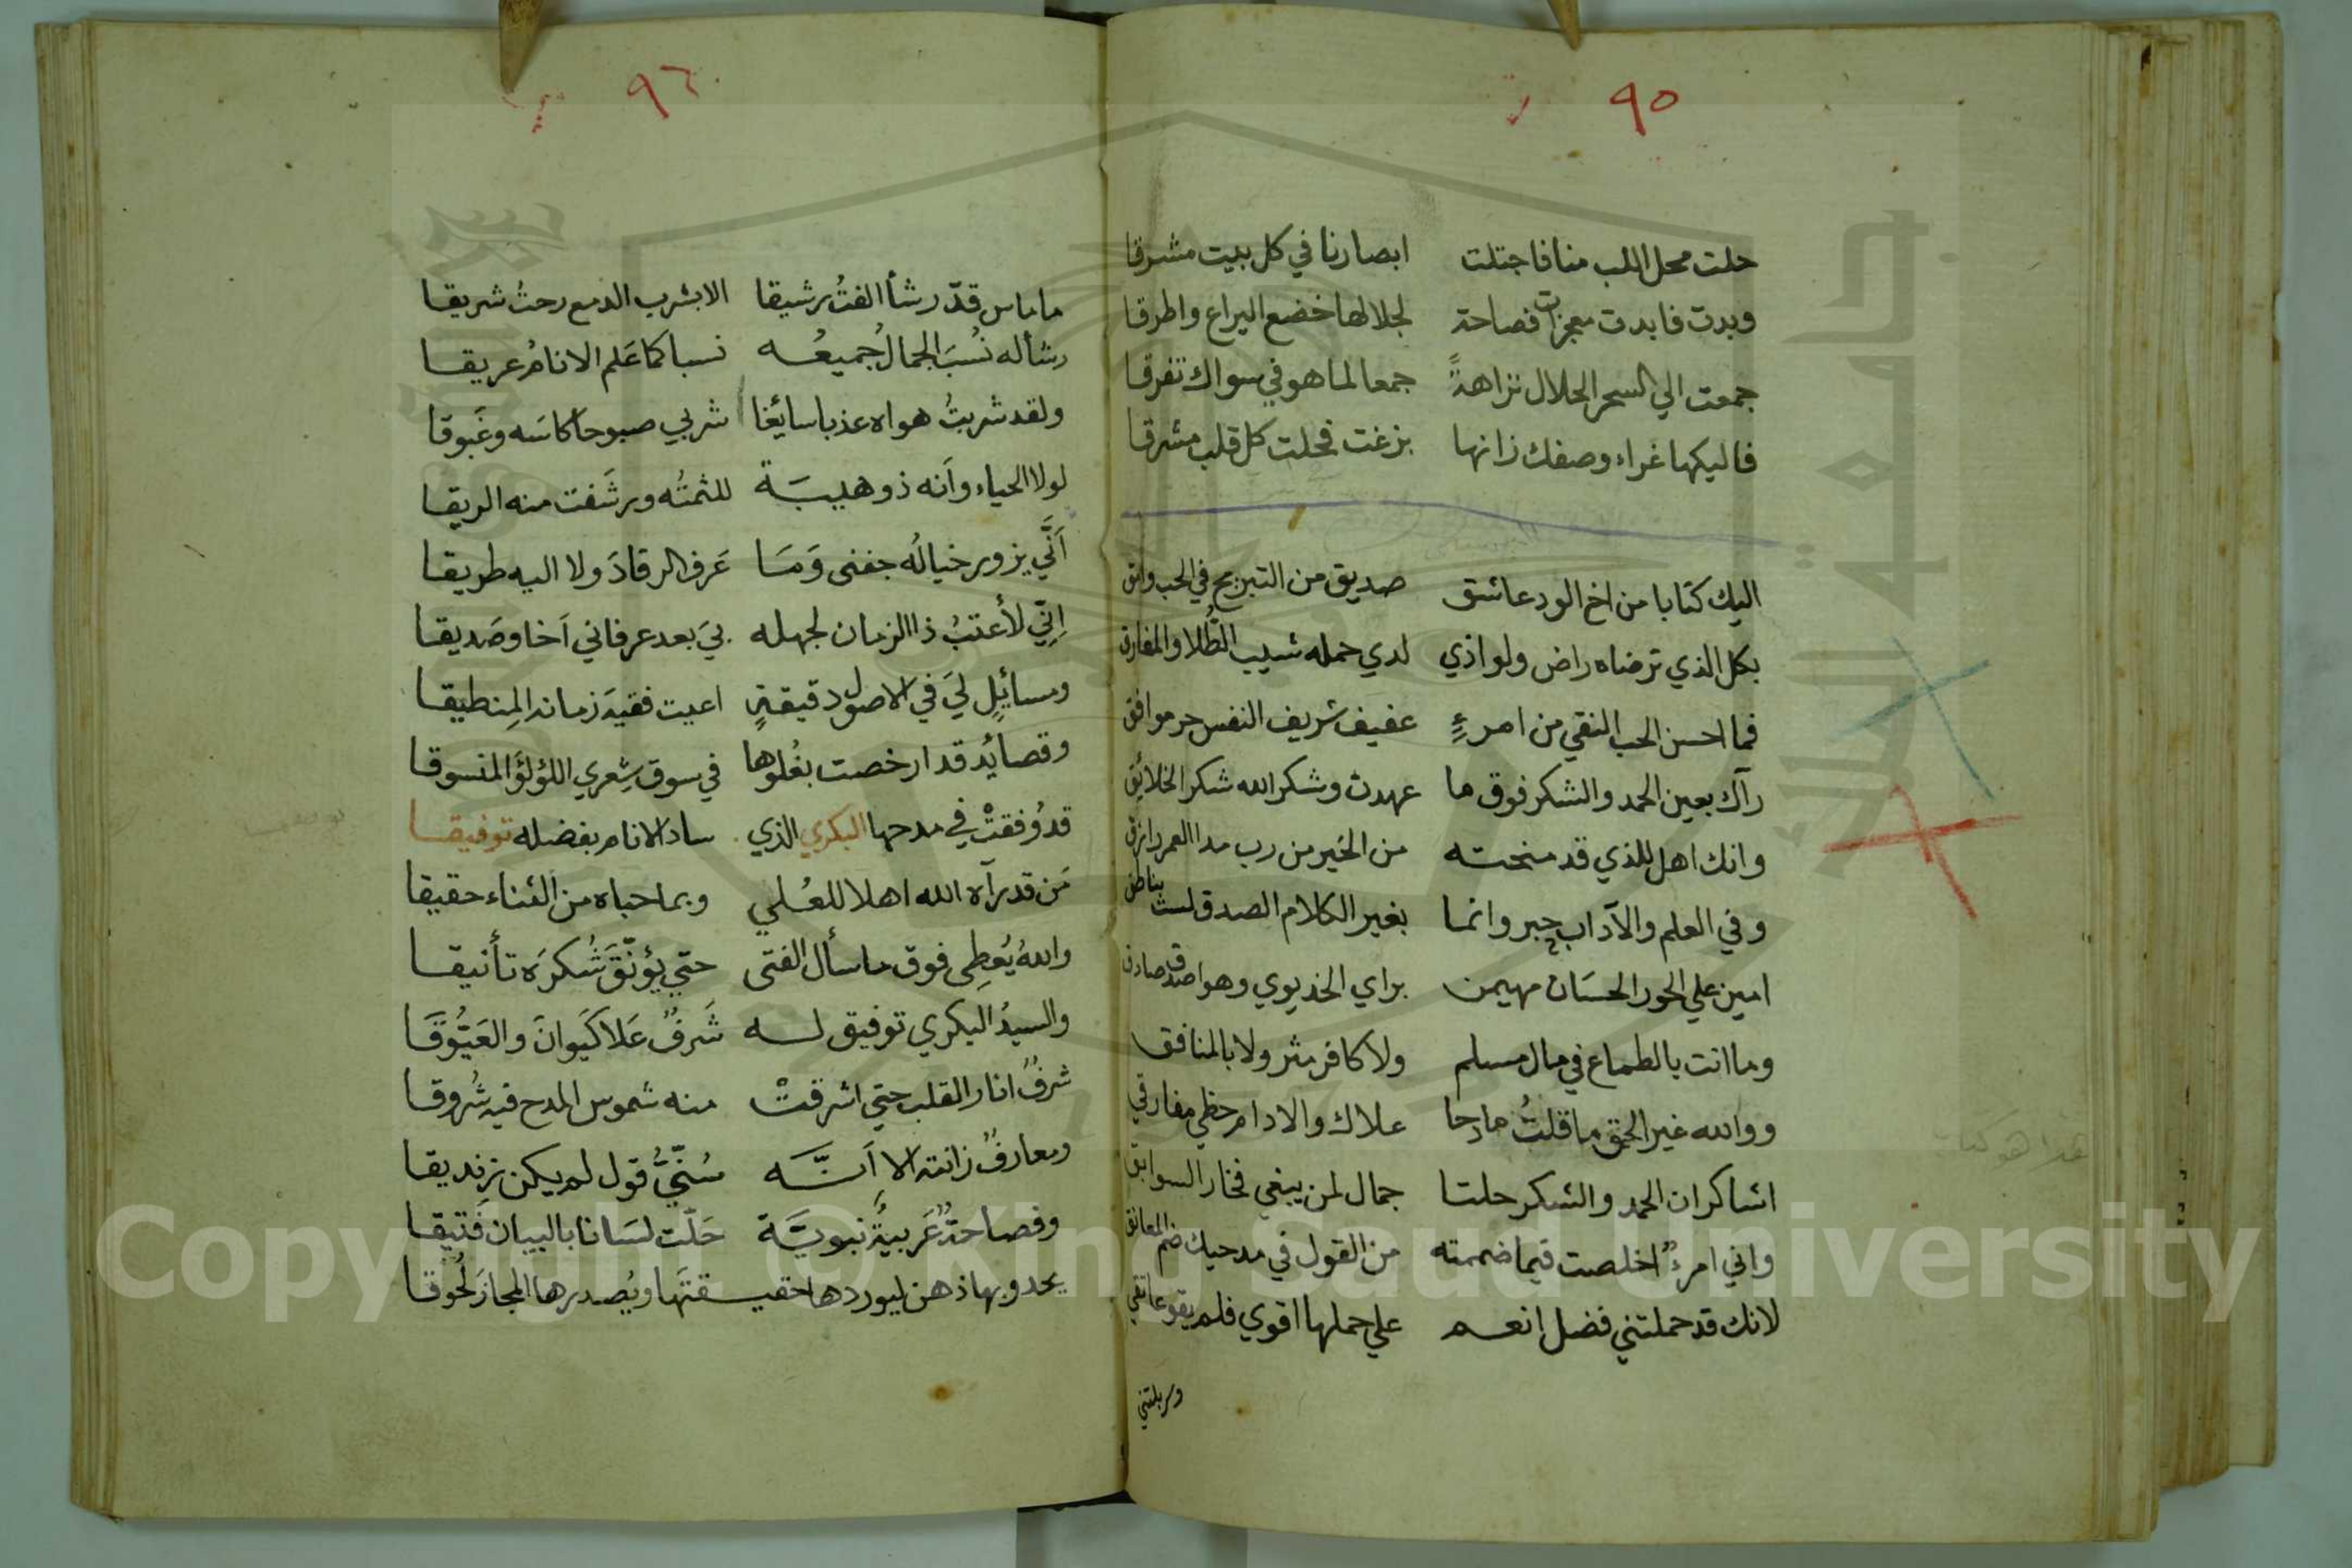 ٩٥
حلت محل اللب منا فاجتلت ابصارنا في كل بيت مشرقا
وبدت فابدت معجزات فصاحة لجلالها خضع اليراع واطرقا
جمعت الي السحر الحلال نزاهةً جمعا لما هو في سواك تفرقا
فاليكها غراء وصفك زانها بزغت فحلت كل قلب مشرقا
اليك كتابا من اخ الود عاشق صديق من التبريح في الحب واثق
بكل الذي ترضاه راض ولو اذي لدي حمله شيب الطُّلا والمفارق
فما احسن الحب النقي من امرءٍ عفيف شريف النفس حر موافق
رآك بعين الحمد والشكر فوق ما عهدت وشكر الله شكر الخلائق
وانك اهل للذي قد منحته من الخير من رب مدا العمر رازق
وفي العلم والآداب حبر وانما بغير الكلام الصدق لست بناطق
امين علي الحور الحسَان مهيمن براي الخديوي وهو اصدق صادق
وما انت بالطماع في مال مسلم ولا كافر مثر ولا بالمنافق
ووالله غير الحق ما قلتُ مادحا علاك والا دام حظي مفارقي
اشاكر ان الحمد والشكر حلتا جمال لمن يبغي فخار السوابق
واني امرءٌ اخلصت فيما ضممته من القول في مدحيك ضم المعانق
لانك قد حملتني فضل انعم علي حملها اقوي فلم يقو عاتقي
وسربلتني
٩٦
ما ماس قدّ رشأ الفتُ رشيقا الا بشرب الدمع رحتُ شريقا
رشأ له نُسبَ الجمالُ جميعُه نسبا كما عَلم الانامُ عريقا
ولقد شربتُ هواه عذبا سائغا شربي صبوحا كاسَه وغَبوقا
لولا الحياء وأنه ذو هيبَة للثمتُه ورشَفت منه الريقا
أنَّي يزور خيالُه جفنى وَمَا عَرف الرقادَ ولا اليه طريقا
اِنّي لأعتبُ ذا الزمان لجهله بيَ بعد عرفاني أخا وصَديقا
ومسائلٍ ليَ في الاصول دقيقةٍ اعيت فقيهَ زمانه المِنطيقا
وقصائد قد ارخصت بغُلوها في سوق شِعري اللؤلؤَ المنسوقا
قد وُفقتْ في مدحها البكري الذي ساد الانام بفضله توفيقا
مَن قد رآه الله اهلا للعُلي وبما حباه من الثناء حقيقا
واللهُ يُعطِى فوق ما سأل الفتى حتي يؤنّقَ شُكرَه تأنيقا
والسيدُ البكري توفيق له شَرفٌ عَلا كَيوانَ والعَيُّوقَا
شرفٌ انار القلب حتي اشرقتْ منه شموس المدح فيه شُروقا
ومعارفٌ زانته الا أنَّه سُنّيُّ قول لم يكن زنديقا
وفصاحةٌ عَربيةٌ نبويَّة حَلّت لسَانا بالبيان فَتيقا
يحدو بها ذهن ليوردها حقيقتَها ويُصدرها المجازَ لُحوقا
Copyright © King Saud University